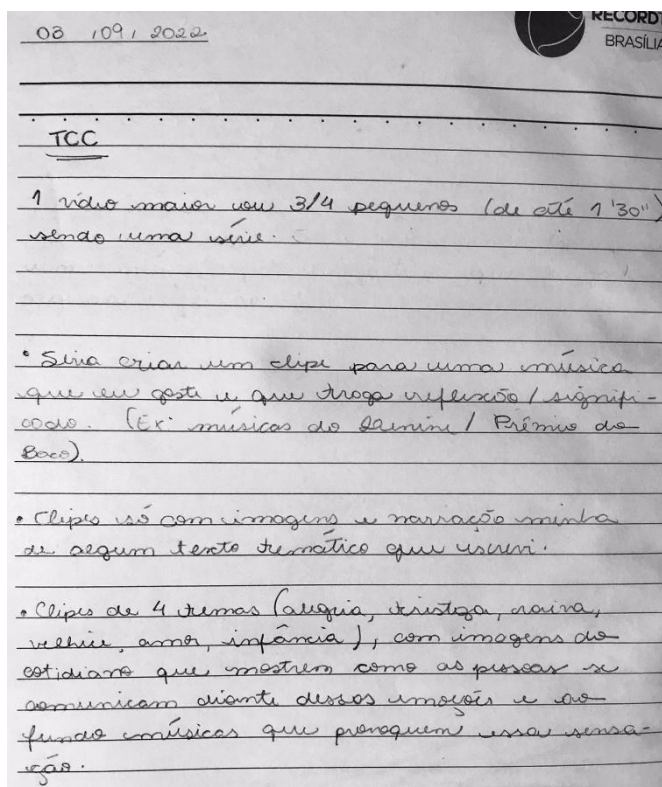 03 / 09 / 2022
RECORDT
BRASÍLIA
TCC
1 vídeo maior ou 3/4 pequenos (de até 1'30")
sendo uma série.
• Seria criar um clipe para uma música
que eu goste e que traga reflexão / signifi-
cado. (Ex: músicas do / Prêmio do
Baco).
• Clipes só com imagens e narração minha
de algum texto temático que escrevi.
• Clipes de 4 temas (alegria, tristeza, raiva,
velhice, amor, infância), com imagens do
cotidiano que mostrem como as pessoas se
comunicam diante dessas emoções e ao
fundo músicas que provoquem essa sensa-
ção.